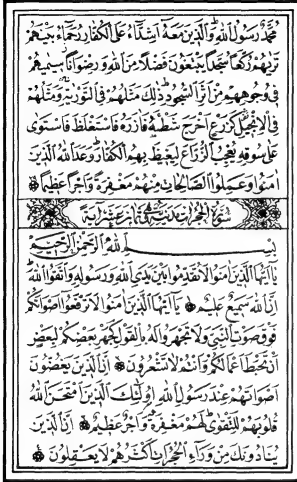 محمد رسول الله والذين معه اشداء على الكفار رحماء بينهم
تريهم ركعا سجدا يبتغون فضلا من الله ورضوانا سيماهم
في وجوههم من اثر السجود ذلك مثلهم في التورية ومثلهم
في الانجيل كزرع اخرج شطئه فازره فاستغلظ فاستوى
على سوقه يعجب الزراع ليغيظ بهم الكفار وعد الله الذين
امنوا وعملوا الصالحات منهم مغفرة واجرا عظيما
سورة الحجرات مدنية وهي ثمان عشرة اية
بسم الله الرحمن الرحيم
يا ايها الذين امنوا لا تقدموا بين يدي الله ورسوله واتقوا الله
ان الله سميع عليم يا ايها الذين امنوا لا ترفعوا اصواتكم
فوق صوت النبي ولا تجهروا له بالقول كجهر بعضكم لبعض
ان تحبط اعمالكم وانتم لا تشعرون ان الذين يغضون
اصواتهم عند رسول الله اولئك الذين امتحن الله
قلوبهم للتقوى لهم مغفرة واجر عظيم ان الذين
ينادونك من وراء الحجرات اكثرهم لا يعقلون